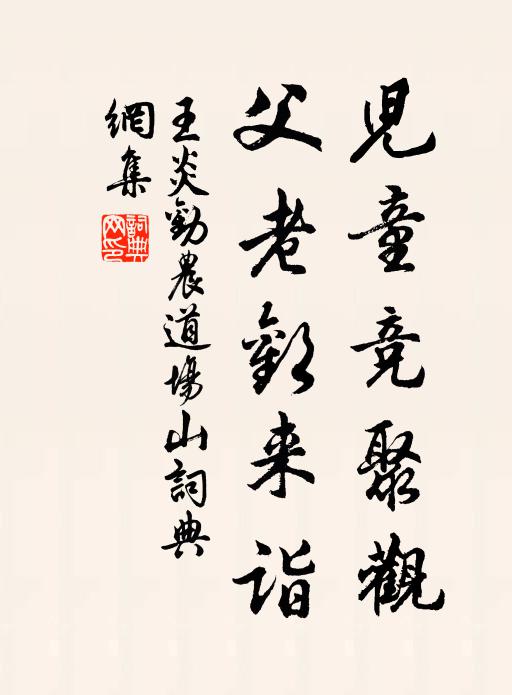 兒童競聚觀
父老歡来詣
王炎勸農道場山詞典
網集
詞典
网印